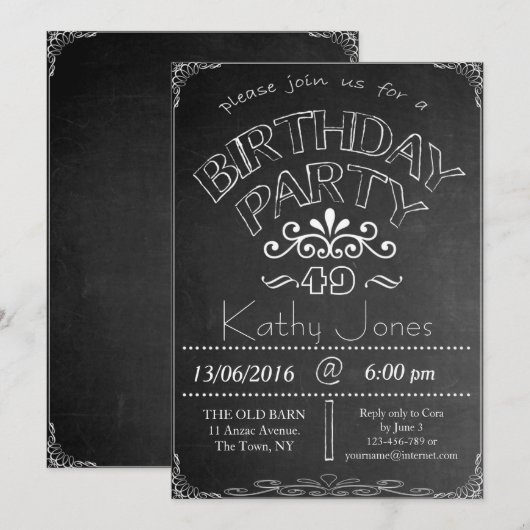 please join us for a
BIRTHDAY
PARTY
~ 49 ~
Kathy Jones
13/06/2016 @ 6:00 pm
THE OLD BARN
11 Anzac Avenue.
The Town, NY
Reply only to Cora
by June 3
123-456-789 or
yourname@internet.com